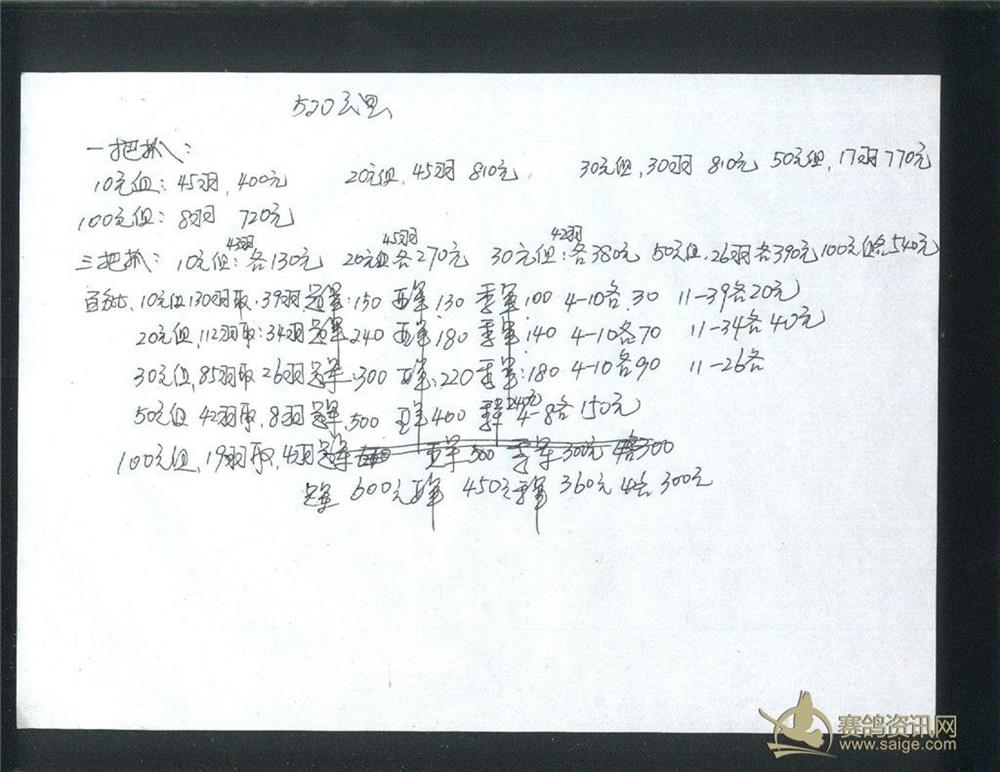 520公里
一把抓:
10元组:45羽,400元 20元组,45羽 810元, 30元组,30羽 810元 50元组,17羽770元
100元组:8羽 720元
43羽 45羽 42羽
三把抓:10元组:各130元 20元组各270元 30元组:各380元 50元组,26羽各390元 100元组各540元
10元组130羽取,39羽冠军:150 亚军,130 季军,100 4-10各,30 11-39各20元
20元组,112羽取:34羽冠军,240 亚军,180 季军,140 4-10各70 11-34各40元
30元组,85羽取26羽冠军:300 亚军:220 季军:180 4-10各90 11-26各
50元组 42羽取,8羽冠军,500 亚军400 季军240元 4-8各150元
100元组,19羽取,4羽冠军 亚军500 季军300元 300
冠军 600元亚军 450元季军 360元 4各300元
赛鸽资讯网
www.saige.com